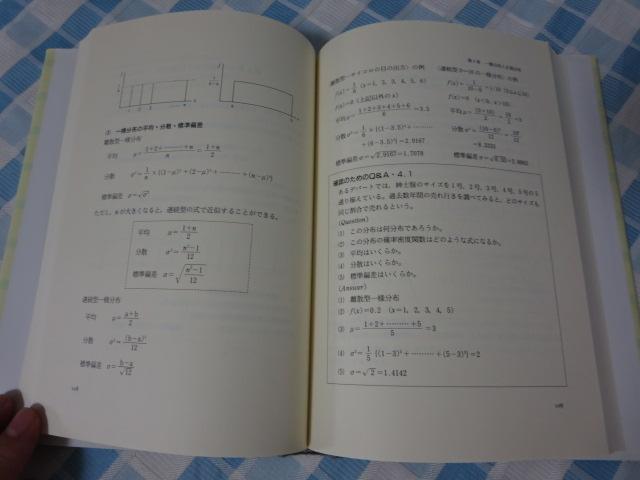 ③ 一様分布の平均・分散・標準偏差
離散型一様分布
平均 μ=(1+2+………+n)/n=(1+n)/2
分散 σ²=1/n×{(1-μ)²+(2-μ)²+………+(n-μ)²}
標準偏差 σ=√σ²
ただし，nが大きくなると，連続型の式で近似することができる。
平均 μ=(1+n)/2
分散 σ²=(n²-1)/12
標準偏差 σ=√((n²-1)/12)
連続型一様分布
平均 μ=(a+b)/2
分散 σ²=(b-a)²/12
標準偏差 σ=(b-a)/√12
離散型―サイコロの目の出方）の例
f(x)=1/6 (x=1, 2, 3, 4, 5, 6)
f(x)=0 (上記以外のx)
平均μ=(1+2+3+4+5+6)/6=3.5
分散σ²=1/6×{(1-3.5)²+………
+(6-3.5)²}=2.9167
標準偏差σ=√2.9167=1.7078
確認のためのQ&A・4.1
あるデパートでは，紳士服のサイズを1号，2号，3号，4号，5号の5
通り揃えている。過去数年間の売れ行きを調べてみると，どのサイズも
同じ割合で売れるという。
(Question)
(1) この分布は何分布であろうか。
(2) この分布の確率密度関数はどのような式になるか。
(3) 平均はいくらか。
(4) 分散はいくらか。
(5) 標準偏差はいくらか。
(Answer)
(1) 離散型一様分布
(2) f(x)=0.2 (x=1, 2, 3, 4, 5)
(3) μ=(1+2+………+5)/5=3
(4) σ²=1/5{(1-3)²+………+(5-3)²}=2
(5) σ=√2=1.4142